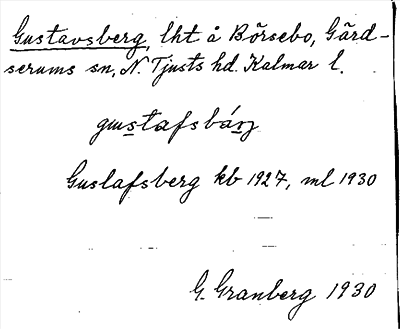 Gustavsberg, lht å Börsebo, Gärd-
serums sn, N. Tjusts hd. Kalmar l.
Gustafsberg kb 1927, ml 1930
G. Granberg 1930